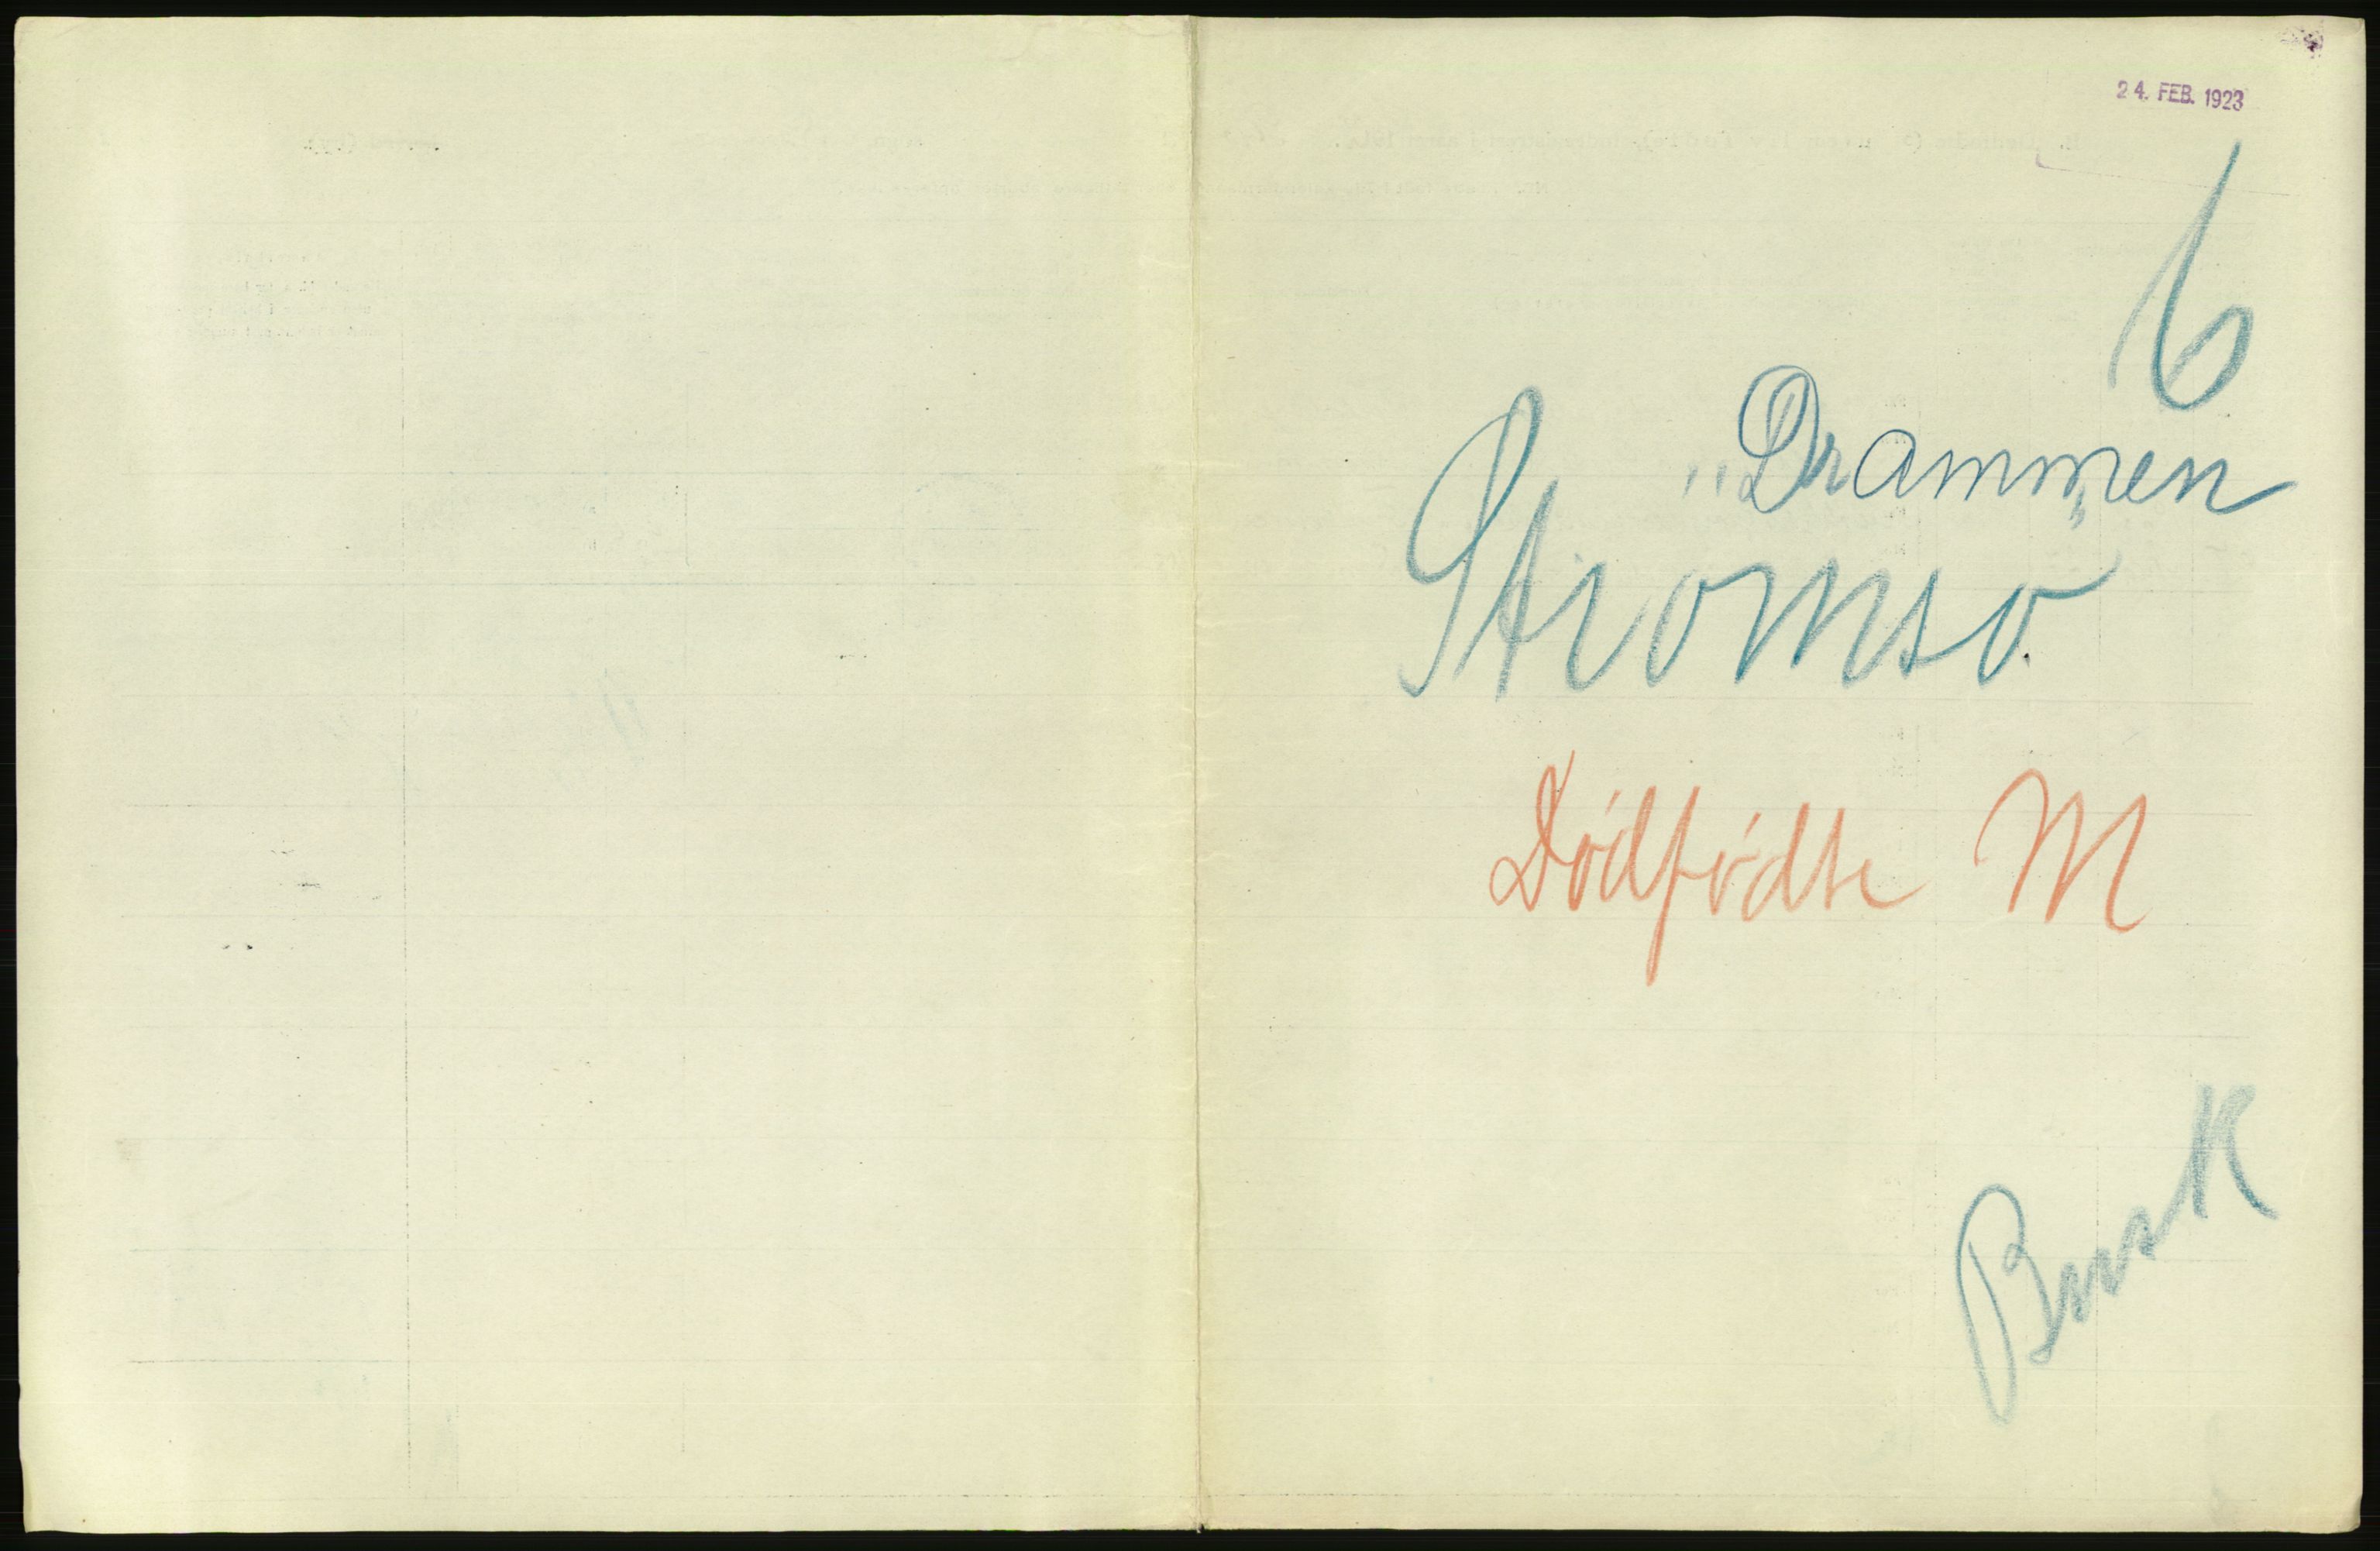 24. FEB. 1923
6
"Drammen"
Stromso
Dødfødte M
Busk